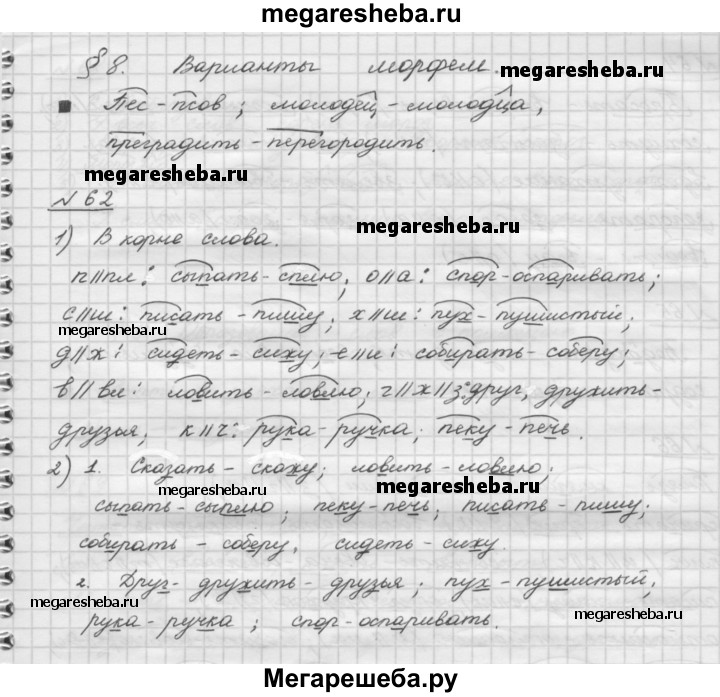 megaresheba.ru
§ 8. Варианты морфем.
megaresheba.ru
Пес - псов; молодец - молодца,
преградить - перегородить.
megaresheba.ru
№ 62
megaresheba.ru
1) В корне слова.
п//пл: сыпать - сплю, о//а: спор - оспаривать;
с//ш: писать - пишу, х//ш: пух - пушистый,
megaresheba.ru
д//ж: сидеть - сижу; е//и: собирать - соберу;
в//вл: ловить - ловлю; г//ж//з: друг, дружить -
друзья, к//ч: рука - ручка, пеку - печь.
2) 1. Сказать - скажу; ловить - ловлю;
megaresheba.ru
megaresheba.ru
сыпать - сыплю, пеку - печь, писать - пишу;
собирать - соберу, сидеть - сижу.
2. Друг - дружить - друзья; пух - пушистый,
megaresheba.ru
megaresheba.ru
рука - ручка; спор - оспаривать.
Мегарешеба.ру